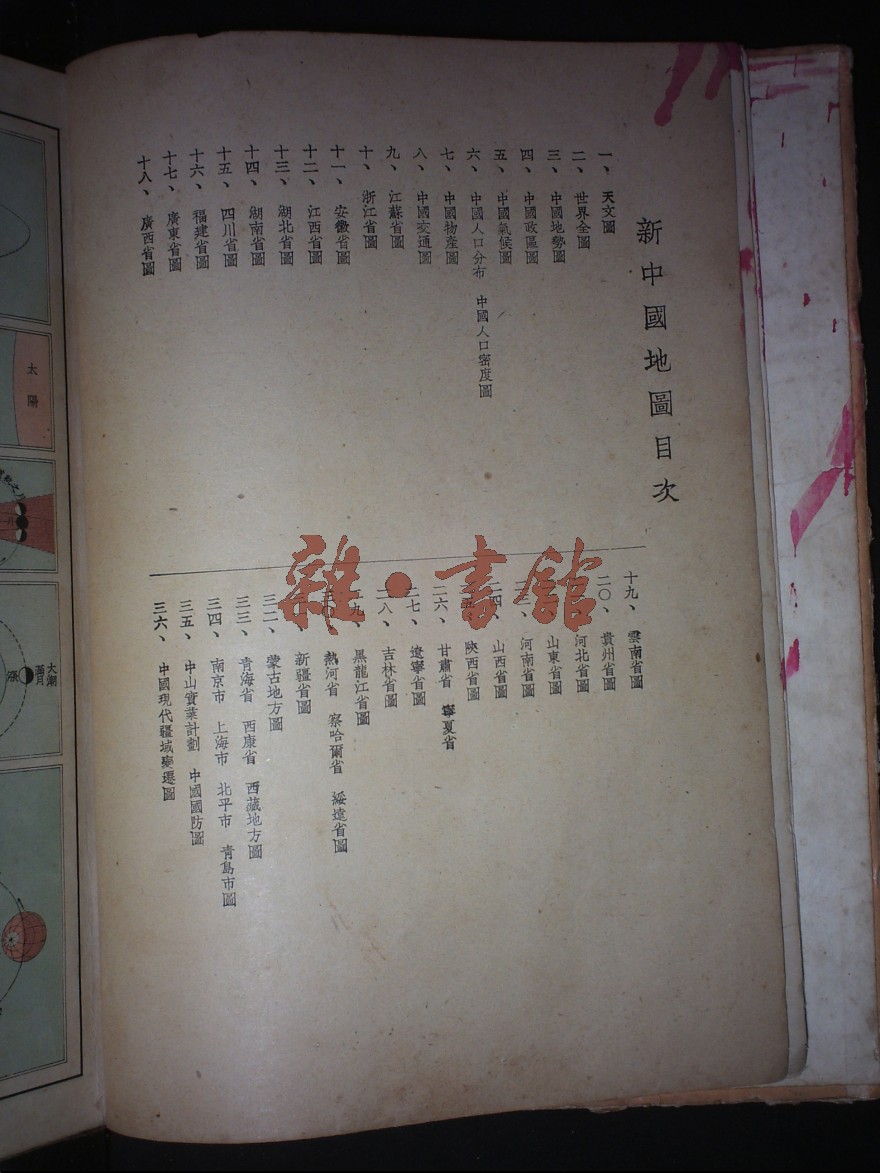 新中國地圖目次
一、天文圖
二、世界全圖
三、中國地勢圖
四、中國政區圖
五、中國氣候圖
六、中國人口分布 中國人口密度圖
七、中國物產圖
八、中國交通圖
九、江蘇省圖
十、浙江省圖
十一、安徽省圖
十二、江西省圖
十三、湖北省圖
十四、湖南省圖
十五、四川省圖
十六、福建省圖
十七、廣東省圖
十八、廣西省圖
十九、雲南省圖
二〇、貴州省圖
河北省圖
山東省圖
河南省圖
山西省圖
陝西省圖
二六、甘肅省 寧夏省
二七、遼寧省圖
二八、吉林省圖
黑龍江省圖
熱河省 察哈爾省 綏遠省圖
新疆省圖
三二、蒙古地方圖
三三、青海省 西康省 西藏地方圖
三四、南京市 上海市 北平市 青島市圖
三五、中山實業計劃 中國國防圖
三六、中國現代疆域變遷圖
雜·書館
太陽
大潮